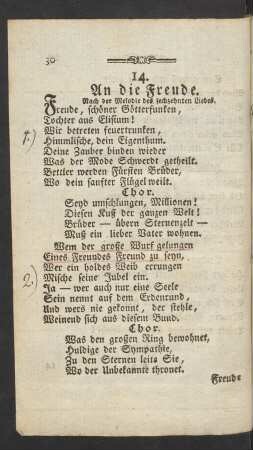 30
14.
An die Freude.
Nach der Melodie des sechzehnten Liedes.
Freude, schöner Götterfunken,
Tochter aus Elisium!
1.) Wir betreten feuertrunken,
Himmlische, dein Eigenthum.
Deine Zauber binden wieder
Was der Mode Schwerdt getheilt.
Bettler werden Fürsten Brüder,
Wo dein sanfter Flügel weilt.
Chor.
Seyd umschlungen, Millionen!
Diesen Kuß der ganzen Welt!
Brüder — übern Sternenzelt —
Muß ein lieber Vater wohnen.
Wem der große Wurf gelungen
Eines Freundes Freund zu seyn,
2.) Wer ein holdes Weib errungen
Mische seine Jubel ein.
Ja — wer auch nur eine Seele
Sein nennt auf dem Erdenrund,
Und wers nie gekonnt, der stehle,
Weinend sich aus diesem Bund.
Chor.
Was den großen Ring bewohnet,
Huldige der Sympathie,
Zu den Sternen leits Sie,
Wo der Unbekannte thronet.
Freude